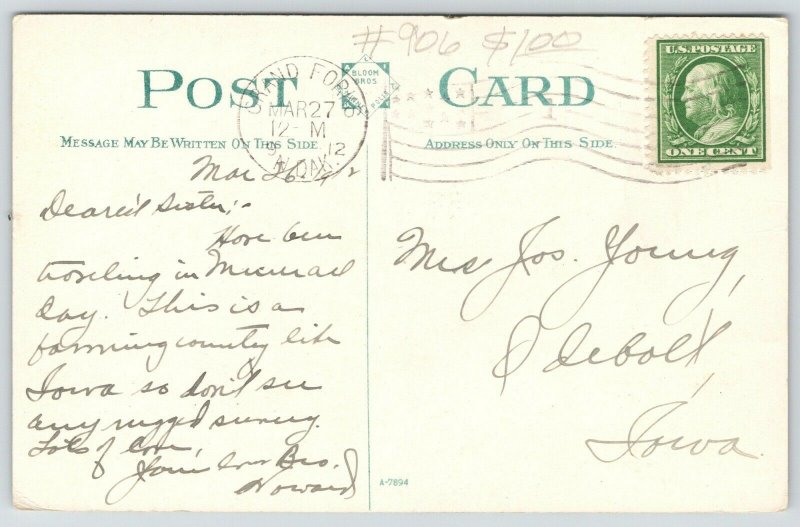 #906 $1.00
POST CARD
BLOOM BROS.
U.S. POSTAGE
ONE CENT
GRAND FORKS
MAR 27
12-M
1912
N. DAK.
MESSAGE MAY BE WRITTEN ON THIS SIDE
ADDRESS ONLY ON THIS SIDE
Mar 26
Dearest Sister;-
Have been
traveling in
all
day. This is a
farming country like
Iowa so don't see
any rugged scenery.
Lots of love,
Your Bro.
Howard
Mrs Jos. Young,
Odebolt,
Iowa
A-7894